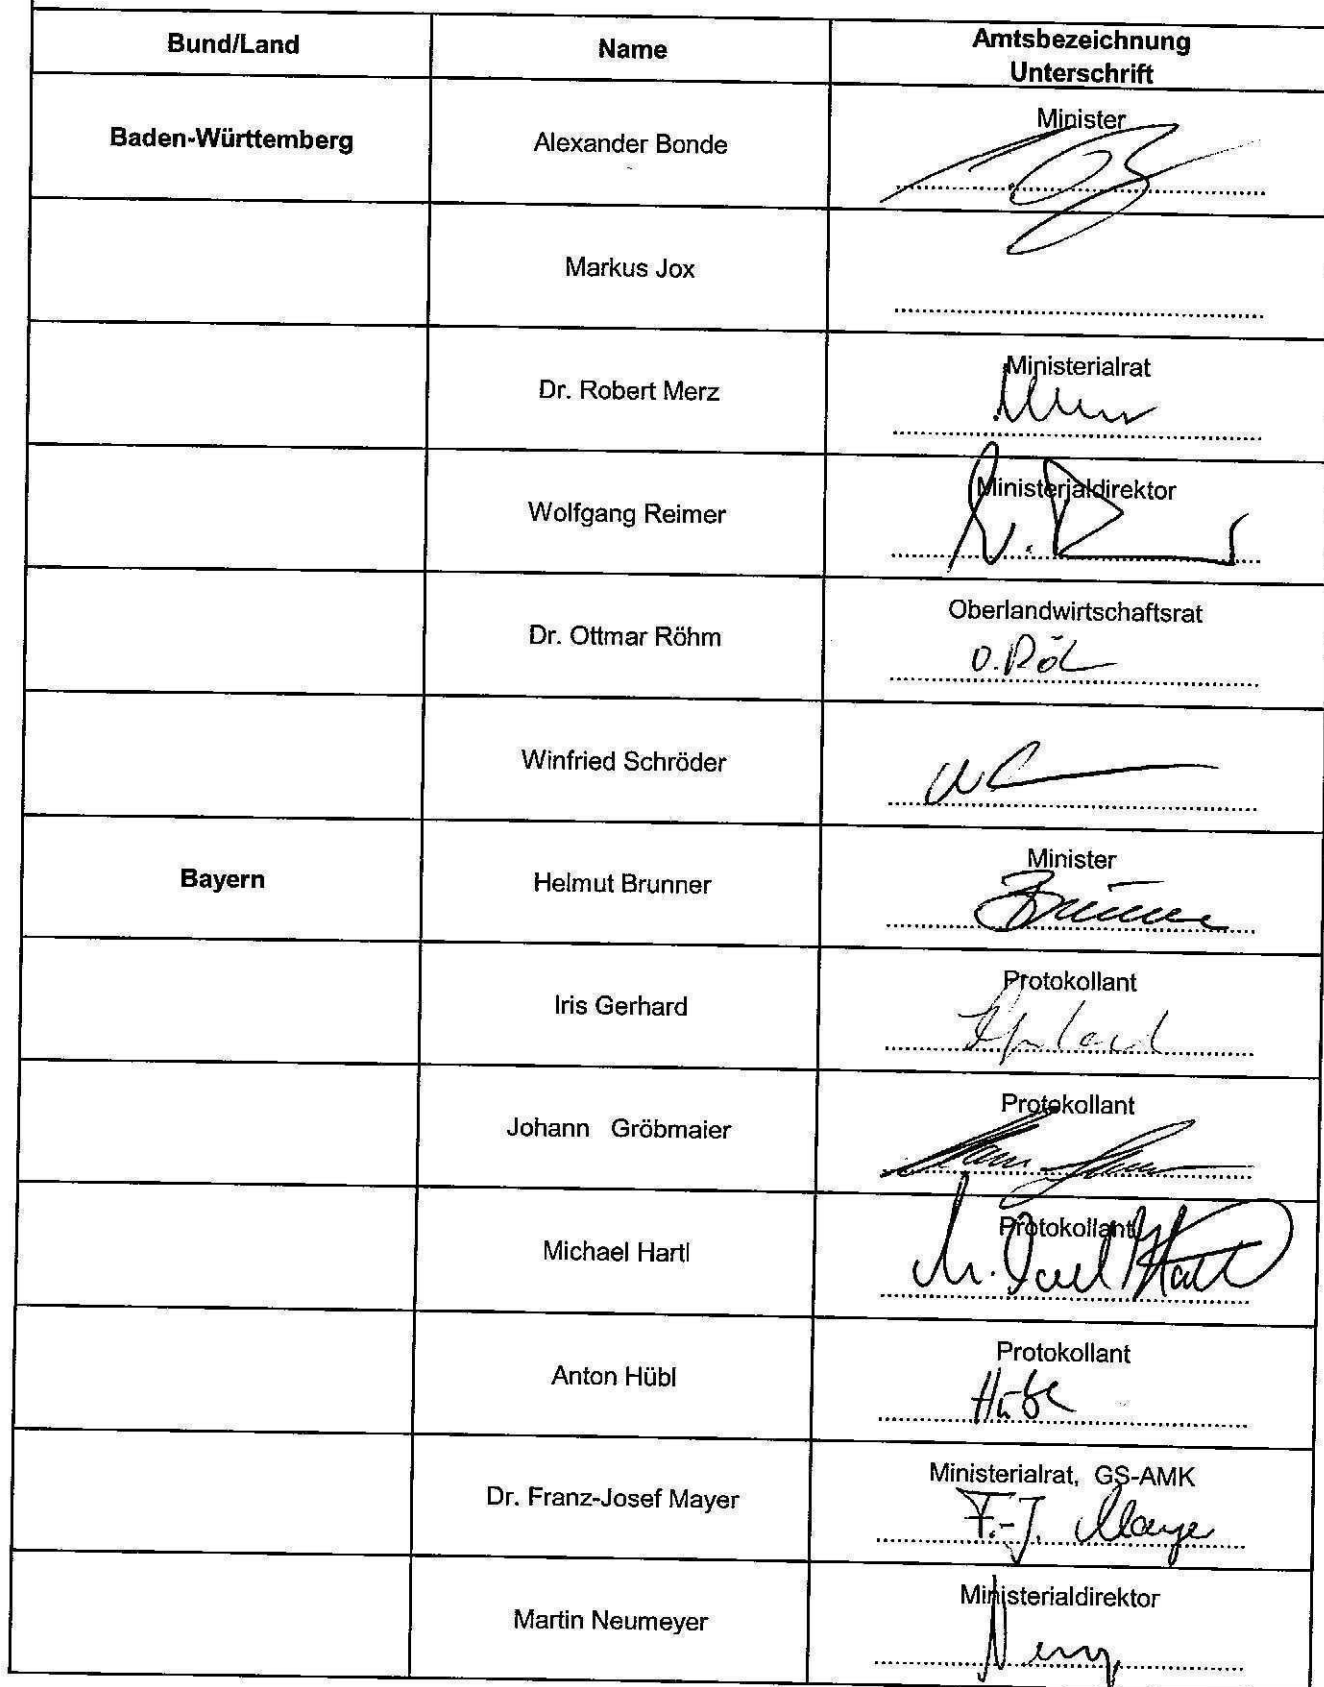 Bund/Land
Name
Amtsbezeichnung
Unterschrift
Baden-Württemberg
Alexander Bonde
Minister
Markus Jox
Dr. Robert Merz
Ministerialrat
Wolfgang Reimer
Ministerialdirektor
Dr. Ottmar Röhm
Oberlandwirtschaftsrat
Winfried Schröder
Bayern
Helmut Brunner
Minister
Iris Gerhard
Protokollant
Johann Gröbmaier
Protokollant
Michael Hartl
Protokollant
Anton Hübl
Protokollant
Hübl
Dr. Franz-Josef Mayer
Ministerialrat, GS-AMK
F.-J. Mayer
Martin Neumeyer
Ministerialdirektor